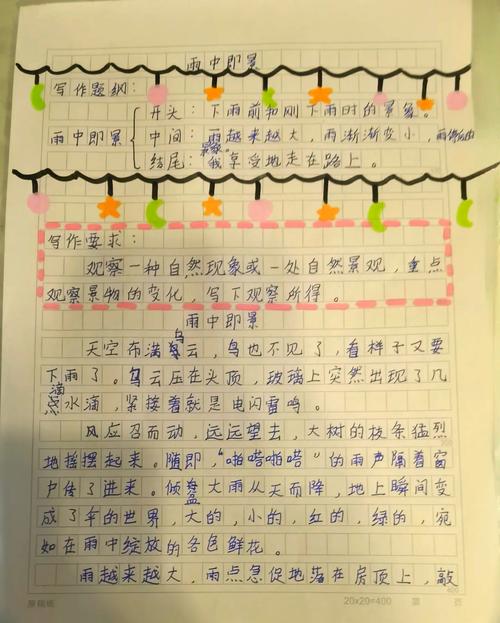 雨中即景
写作题纲：
开头：下雨前和刚下雨时的景象。
雨中即景 中间：雨越来越大，雨渐渐变小，雨停后的景象。
结尾：我享受地走在路上。
写作要求：
观察一种自然现象或一处自然景观，重点
观察景物的变化，写下观察所得。
雨中即景
天空布满乌云，鸟也不见了，看样子又要
下雨了。乌云压在头顶，玻璃上突然出现了几
滴水滴，紧接着就是电闪雷鸣。
风应召而动，远远望去，大树的枝条猛烈
地摇摆起来。随即，“啪嗒啪嗒”的雨声隔着窗
户传了进来。倾盆大雨从天而降，地上瞬间变
成了伞的世界，大的，小的，红的，绿的，宛
如在雨中绽放的各色鲜花。
雨越来越大，雨点急促地落在房顶上，敲
400
原稿纸 20×20=400 第 页